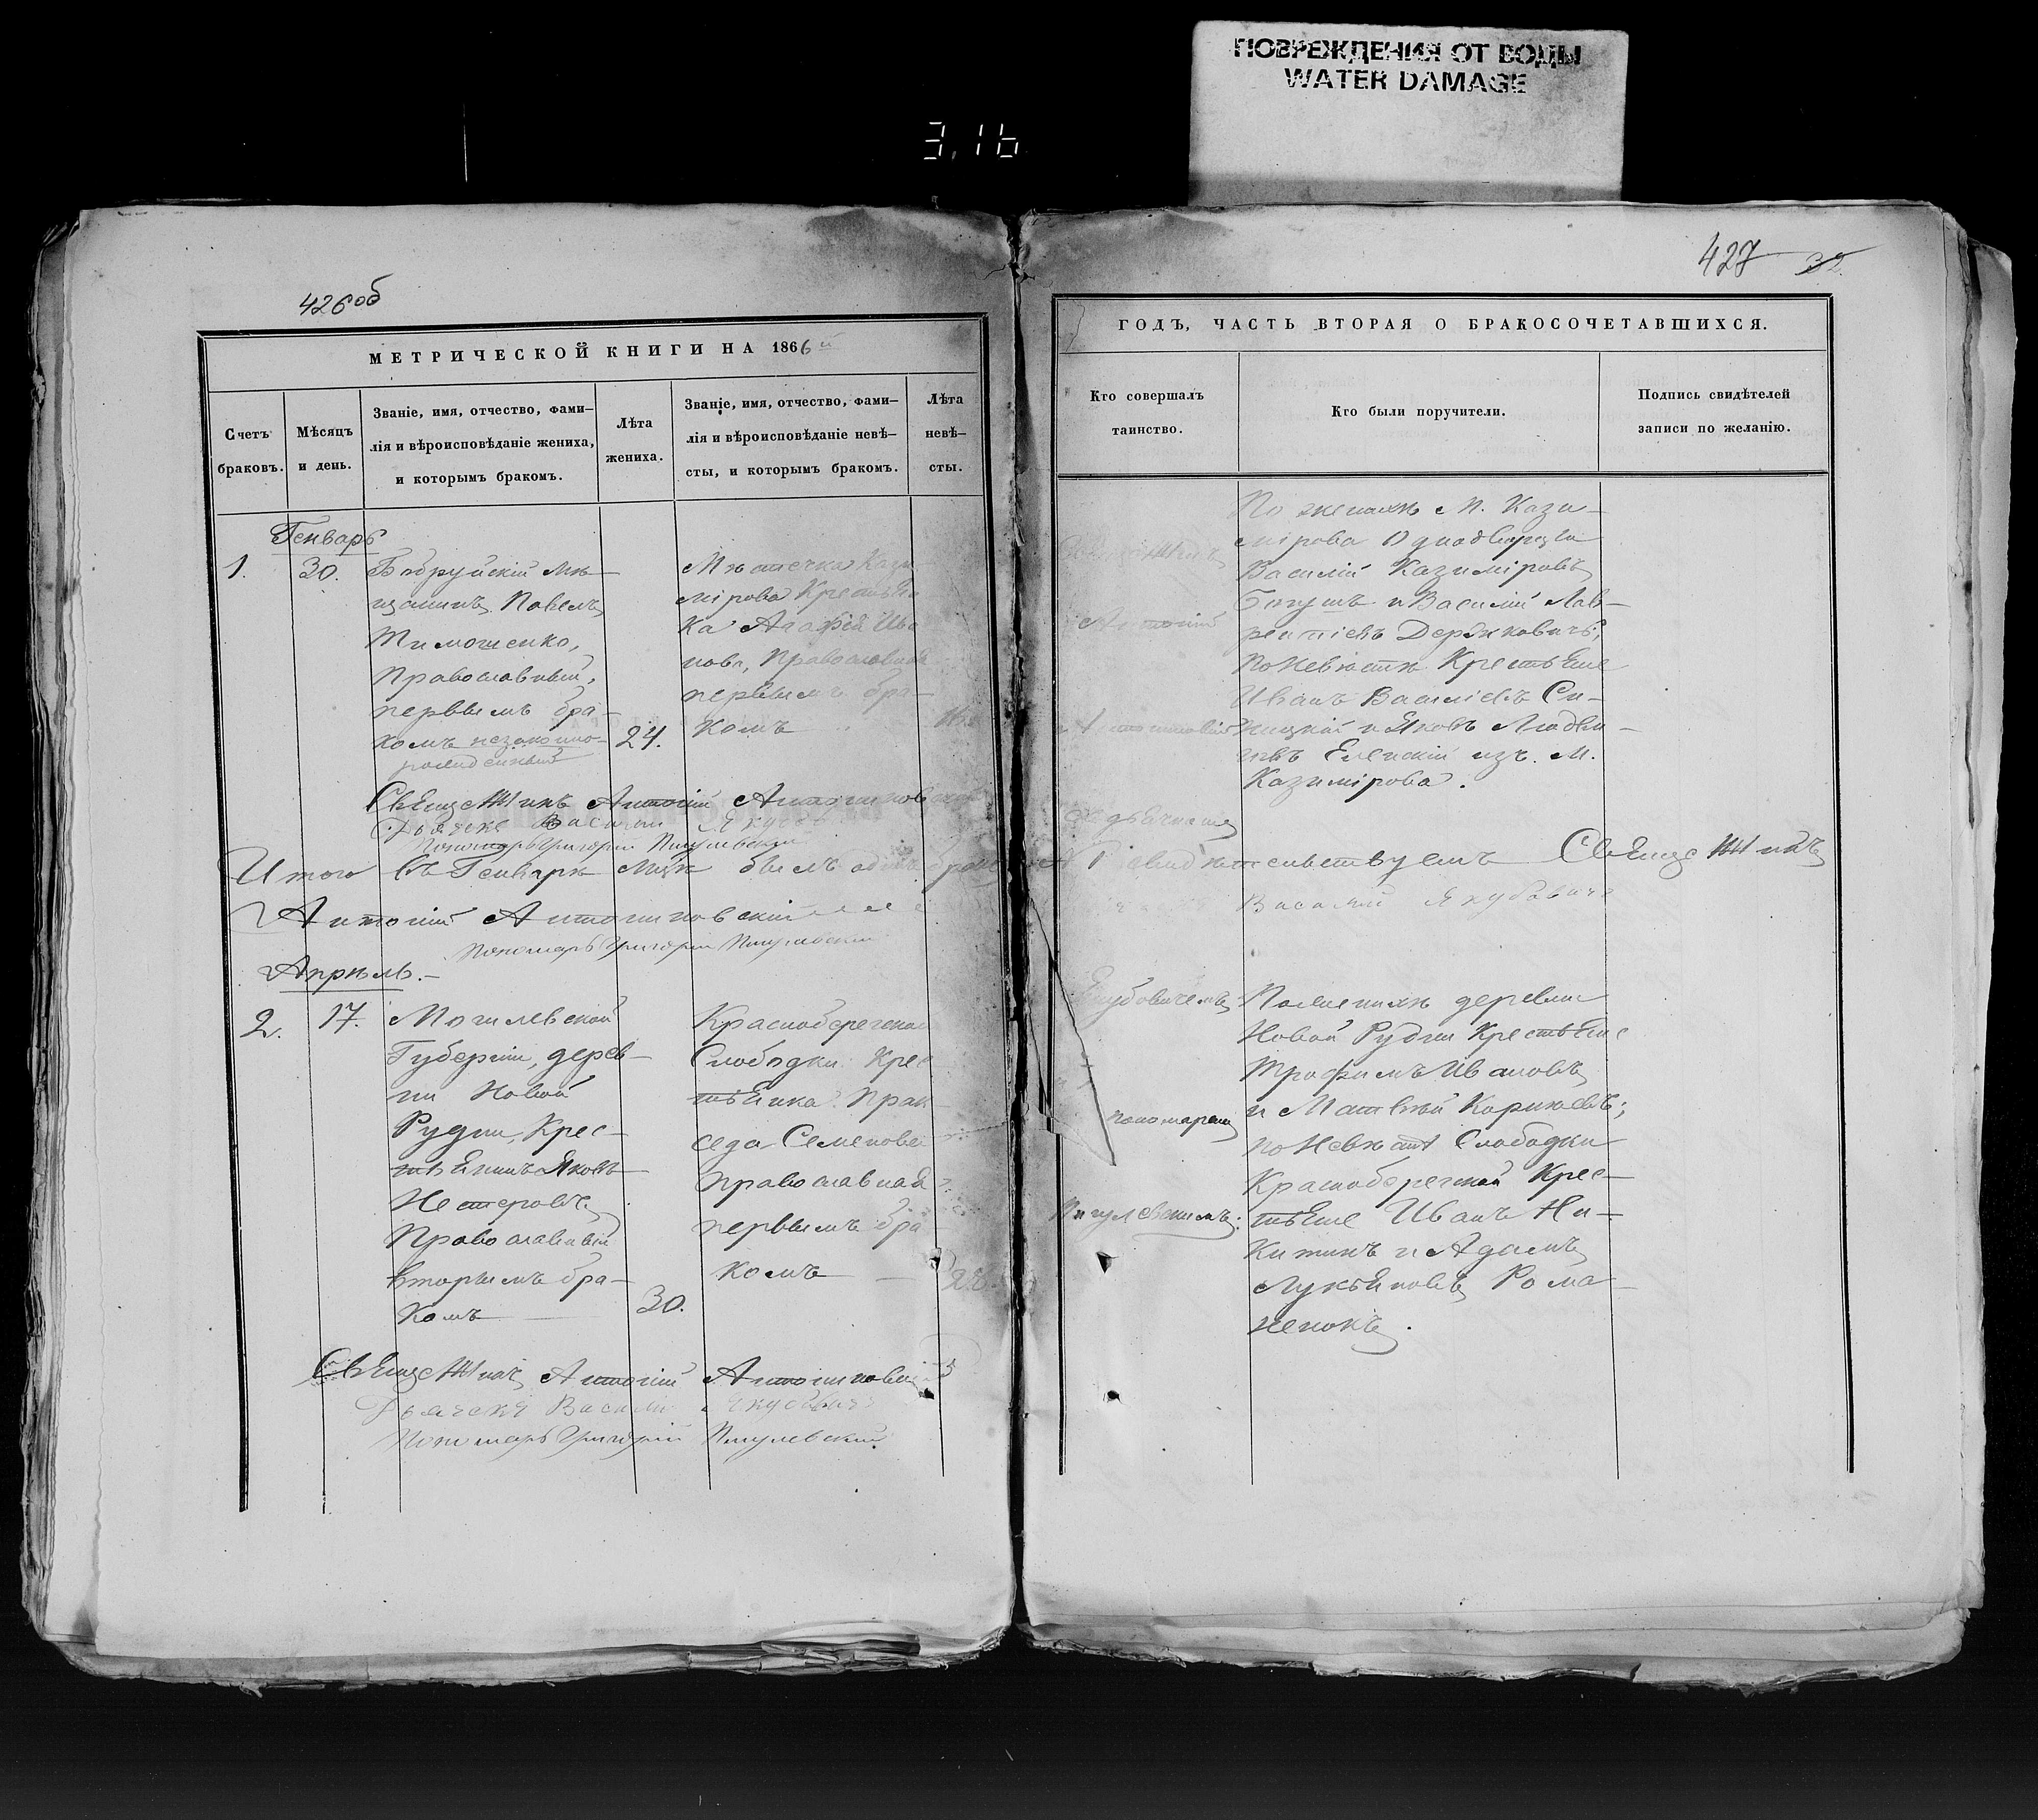 ПОВРЕЖДЕНИЯ ОТ ВОДЫ
WATER DAMAGE
3,16
426об
МЕТРИЧЕСКОЙ КНИГИ НА 1866й
Счетъ браковъ.
Мѣсяцъ и день.
Званіе, имя, отчество, фами-
лія и вѣроисповѣданіе жениха,
и которымъ бракомъ.
Лѣта
жениха.
Званіе, имя, отчество, фами-
лія и вѣроисповѣданіе невѣ-
сты, и которымъ бракомъ.
Лѣта
невѣ-
сты.
Генварь
1.
30.
Бобруйскій мѣ-
щанинъ Павелъ
Тимошенко,
Православный,
первымъ бра-
комъ незаконно-
рожденный
24.
Мѣстечка Кази
мірова Крестьян
ка Агафія Ива
нова, Православная
первымъ бра-
комъ
Священникъ Антоній Антоновскій
Дьячекъ Василій
Пономарь Григорій Пигулевскій
Итого въ Генварѣ мцѣ былъ одинъ
Антоній Антоновскій
Пономарь Григорій Пигулевскій
Апрѣль.
2.
17.
Могилевской
Губерніи, дерев-
ни Новой
Рудни, Крес-
тьянинъ Яковъ
Нестеровъ,
Православный
вторымъ бра-
комъ
30.
Краснобережской
Слободки Крес
тьянка Прак
седа Семенова
православная
первымъ бра
комъ
Священникъ Антоній Антоновскій
Дьячекъ Василій Якубовичъ
Пономарь Григорій Пигулевскій
427 32
ГОДЪ, ЧАСТЬ ВТОРАЯ О БРАКОСОЧЕТАВШИХСЯ.
Кто совершалъ
таинство.
Кто были поручители.
Подпись свидѣтелей
записи по желанію.
Антоній
Дьячкомъ
Якубовичемъ
пономаремъ
Пигулевскимъ.
По женихѣ М. Кази-
мірова Однодворцы
Василій Казиміровъ
Богушъ и Василій Лав-
рентіевъ
по Невѣстѣ Крестьяне
Иванъ Василіевъ Си-
ницкій и Яковъ Людви-
говъ Еленскій изъ М.
Казимірова.
свидѣтельствуемъ Священникъ
Василій Якубовичъ
По женихѣ деревни
Новой Рудни Крестьяне
Трофимъ Ивановъ
и Матвѣй Корнѣевъ;
по Невѣстѣ Слободки
Краснобережской Крес-
тьяне Иванъ Ни-
китинъ и Адамъ
Лукьяновъ Рома-
ненокъ.